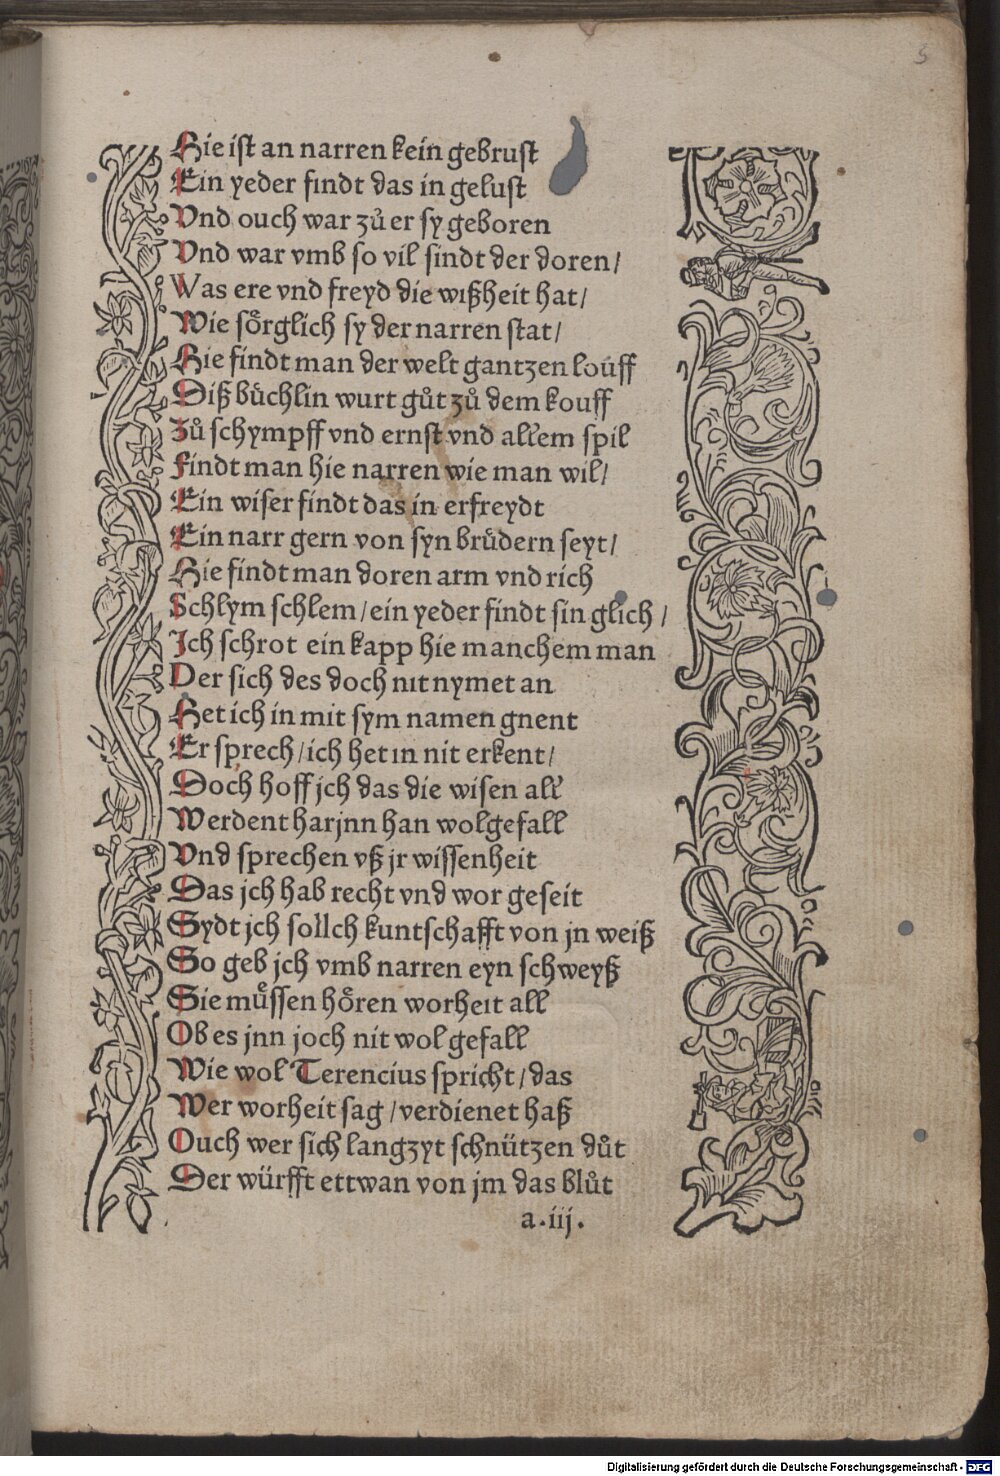 5
Hie ist an narren kein gebrust
Ein yeder findt das in gelust
Vnd ouch war zů er sy geboren
Vnd war vmb so vil sindt der doren/
Was ere vnd freyd die wißheit hat/
Wie soͤrglich sy der narren stat/
Hie findt man der welt gantzen louff
Diß buͤchlin wurt gůt zů dem kouff
Zů schympff vnd ernst vnd allem spil
Findt man hie narren wie man wil/
Ein wiser findt das in erfreydt
Ein narr gern von syn bruͤdern seyt/
Hie findt man doren arm vnd rich
Schlym schlem/ein yeder findt sin glich/
Ich schrot ein kapp hie manchem man
Der sich des doch nit nymet an
Het ich in mit sym namen gnent
Er sprech/ich het in nit erkent/
Doch hoff jch das die wisen all
Werdent harjnn han wolgefall
Vnd sprechen vß jr wissenheit
Das jch hab recht vnd wor geseit
Sydt jch sollch kuntschafft von jn weiß
So geb jch vmb narren eyn schweyß
Sie muͤssen hoͤren worheit all
Ob es jnn joch nit wol gefall
Wie wol Terencius spricht/das
Wer worheit sag/verdienet haß
Ouch wer sich langzyt schnützen důt
Der würfft ettwan von jm das blůt
a.iij.
Digitalisierung gefördert durch die Deutsche Forschungsgemeinschaft - DFG